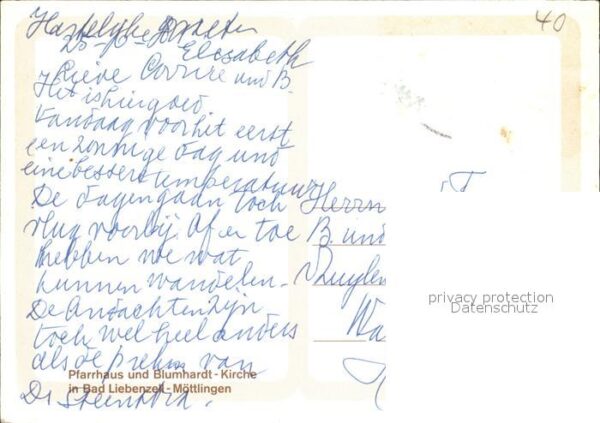 Hartelijke Groeten
Elisabeth
Lieve Corrire und B.
Het is hier goed
Vandaag voor het eerst
een zonnige dag und
eine bessere temperatuur
De dagen gaan toch
vlug voorbij. Af en toe
hebben we wat
kunnen wandelen.
De Andachten zijn
toch wel heel anders
als de preken van
Ds
Herrn
B. und
Wa
40
Pfarrhaus und Blumhardt-Kirche
in Bad Liebenzell-Möttlingen
privacy protection
Datenschutz